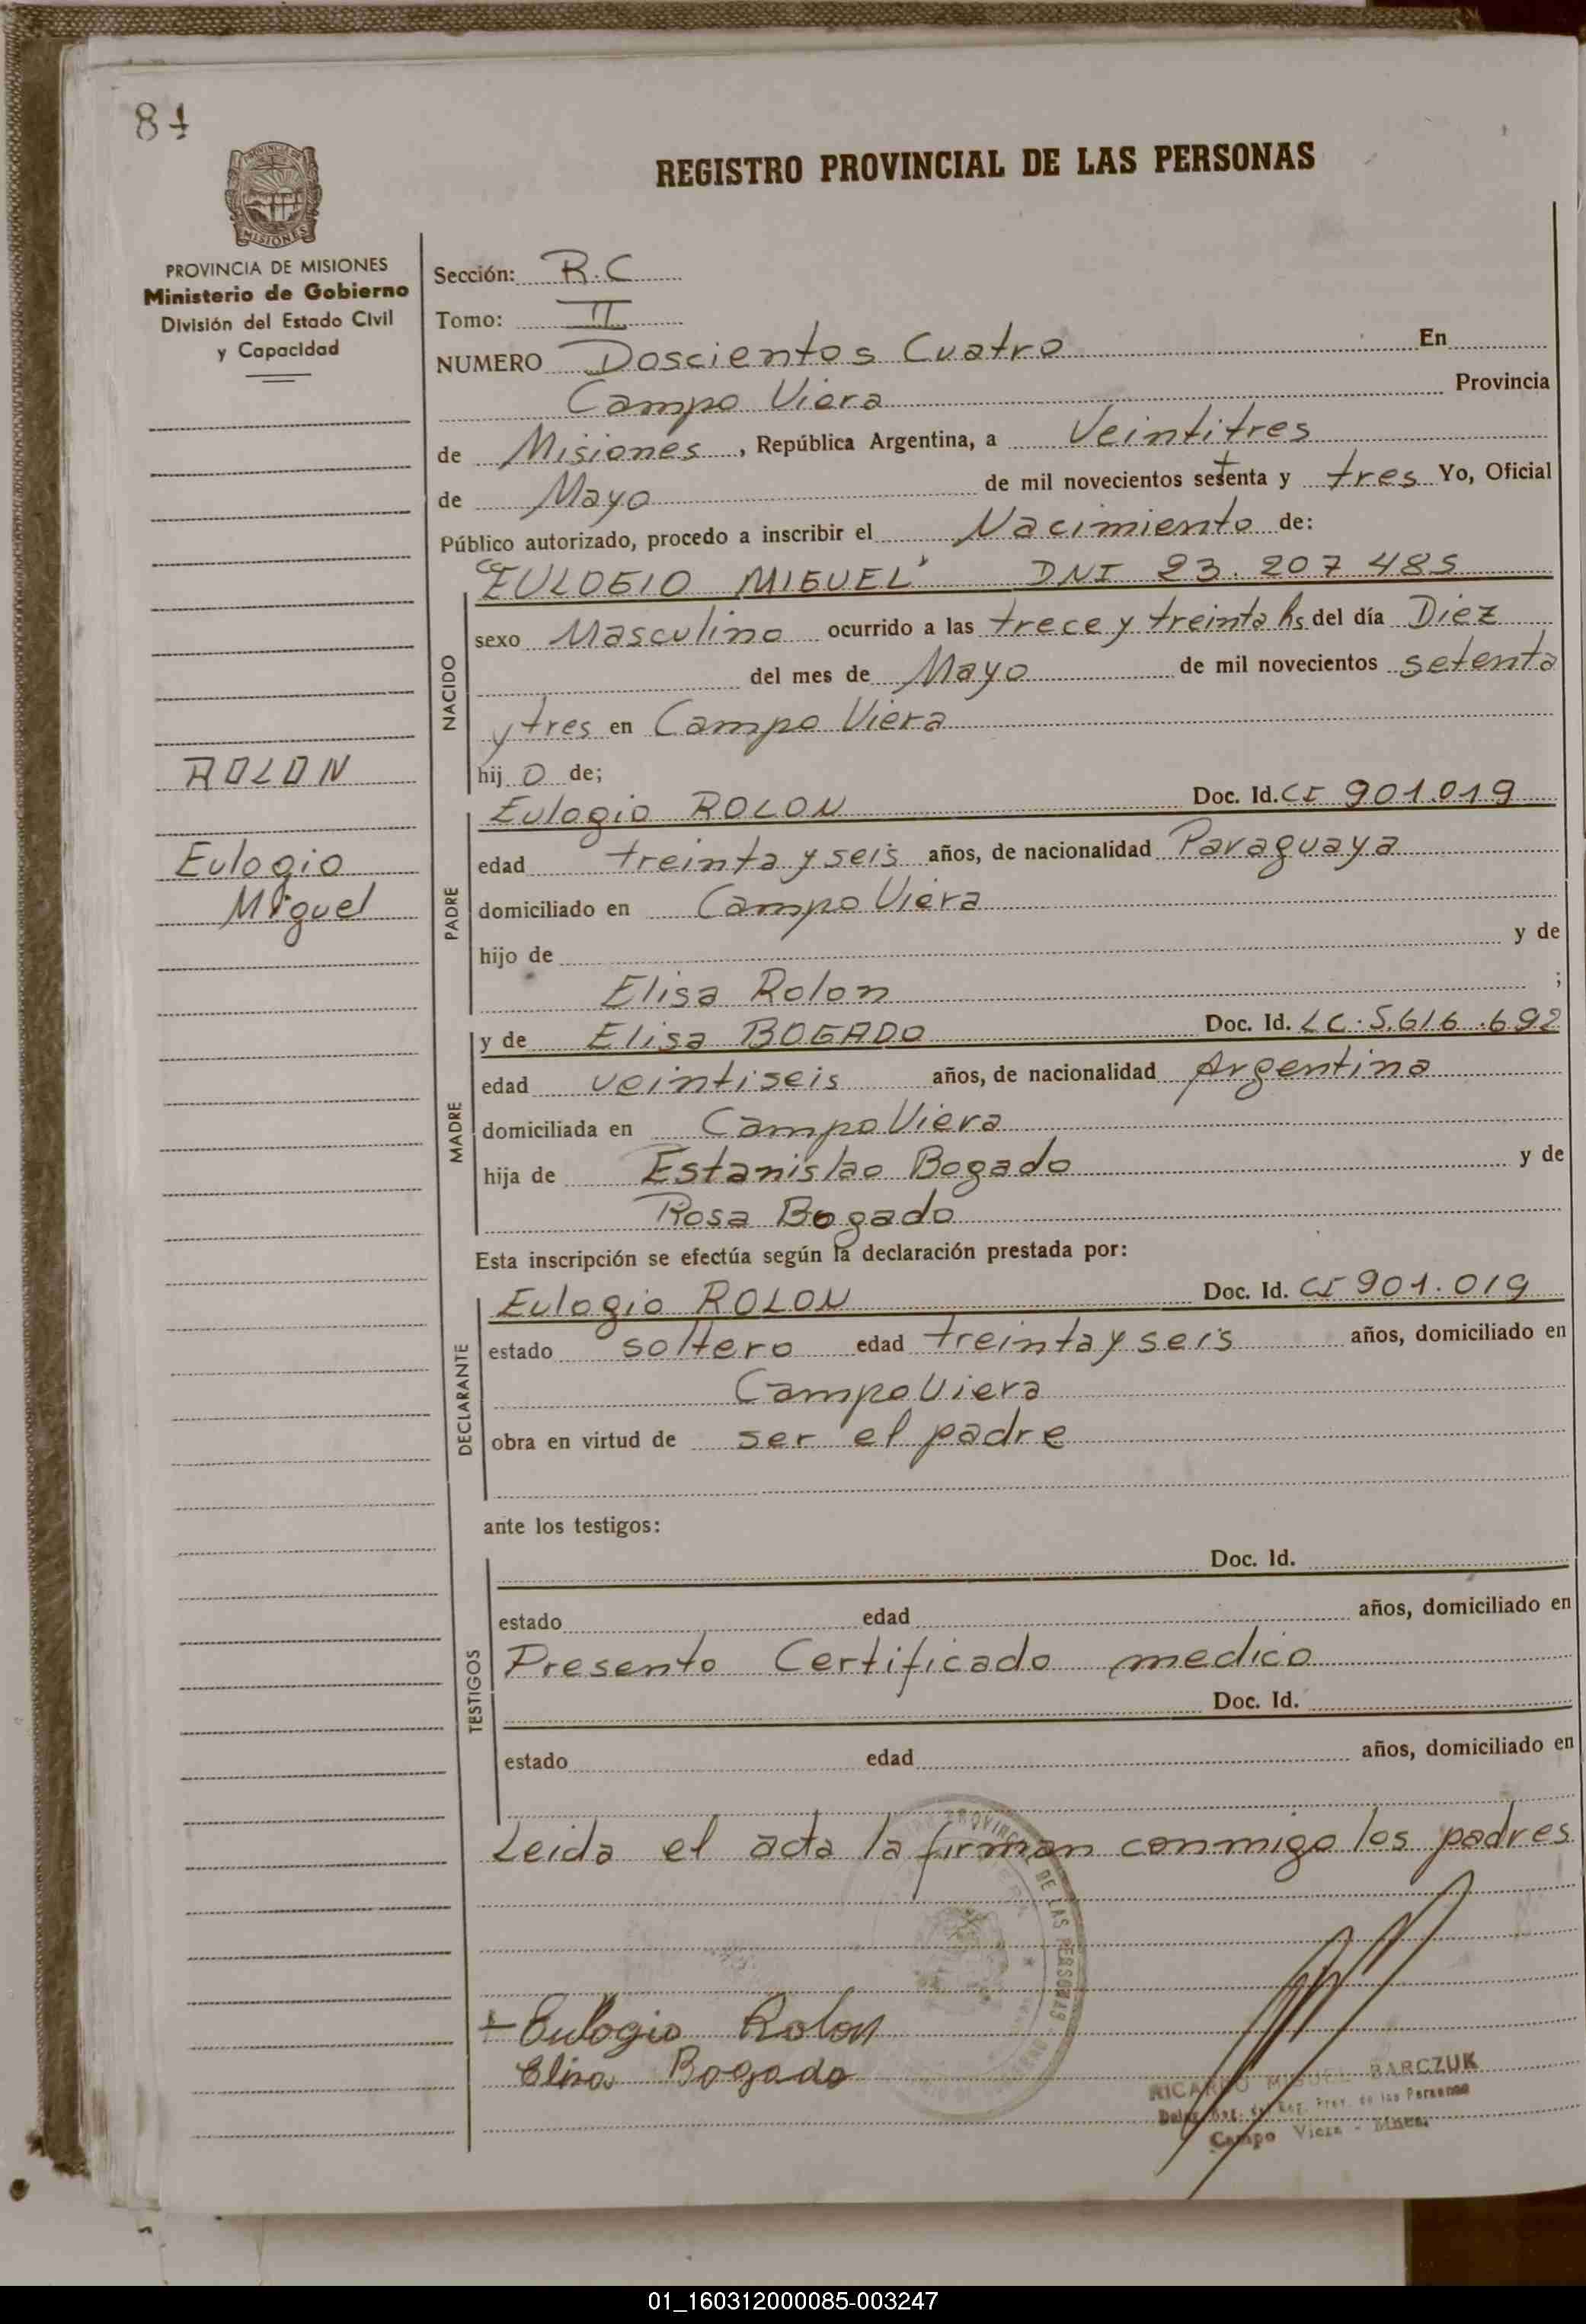 84
REGISTRO PROVINCIAL DE LAS PERSONAS
MISIONES
PROVINCIA DE MISIONES
Ministerio de Gobierno
División del Estado Civil
y Capacidad
Sección: R.C
Tomo: II
NUMERO Doscientos Cuatro En
Campo Viera Provincia
de Misiones, República Argentina, a Veintitres
de Mayo de mil novecientos setenta y tres Yo, Oficial
Público autorizado, procedo a inscribir el Nacimiento de:
EULOGIO MIGUEL DNI 23.207 485
NACIDO
sexo Masculino ocurrido a las trece y treinta hs del día Diez
del mes de Mayo de mil novecientos setenta
y tres en Campo Viera
hij o de;
ROLON
Eulogio
Miguel
PADRE
Eulogio ROLON Doc. Id. CI 901.019
edad treinta y seis años, de nacionalidad Paraguaya
domiciliado en Campo Viera
hijo de y de
Elisa Rolon ;
MADRE
y de Elisa BOGADO Doc. Id. LC. 5.616.692
edad veintiseis años, de nacionalidad Argentina
domiciliada en Campo Viera
hija de Estanislao Bogado y de
Rosa Bogado
Esta inscripción se efectúa según la declaración prestada por:
DECLARANTE
Eulogio ROLON Doc. Id. CI 901.019
estado soltero edad treinta y seis años, domiciliado en
Campo Viera
obra en virtud de ser el padre
ante los testigos:
TESTIGOS
Doc. Id.
estado edad años, domiciliado en
Presento Certificado medico
Doc. Id.
estado edad años, domiciliado en
Leida el acta la firman conmigo los padres
Eulogio Rolon
Elisa Bogado
RICARDO MIGUEL BARCZUK
Reg. Prov. de las Personas
Campo Viera - Mnes.
01_160312000085-003247